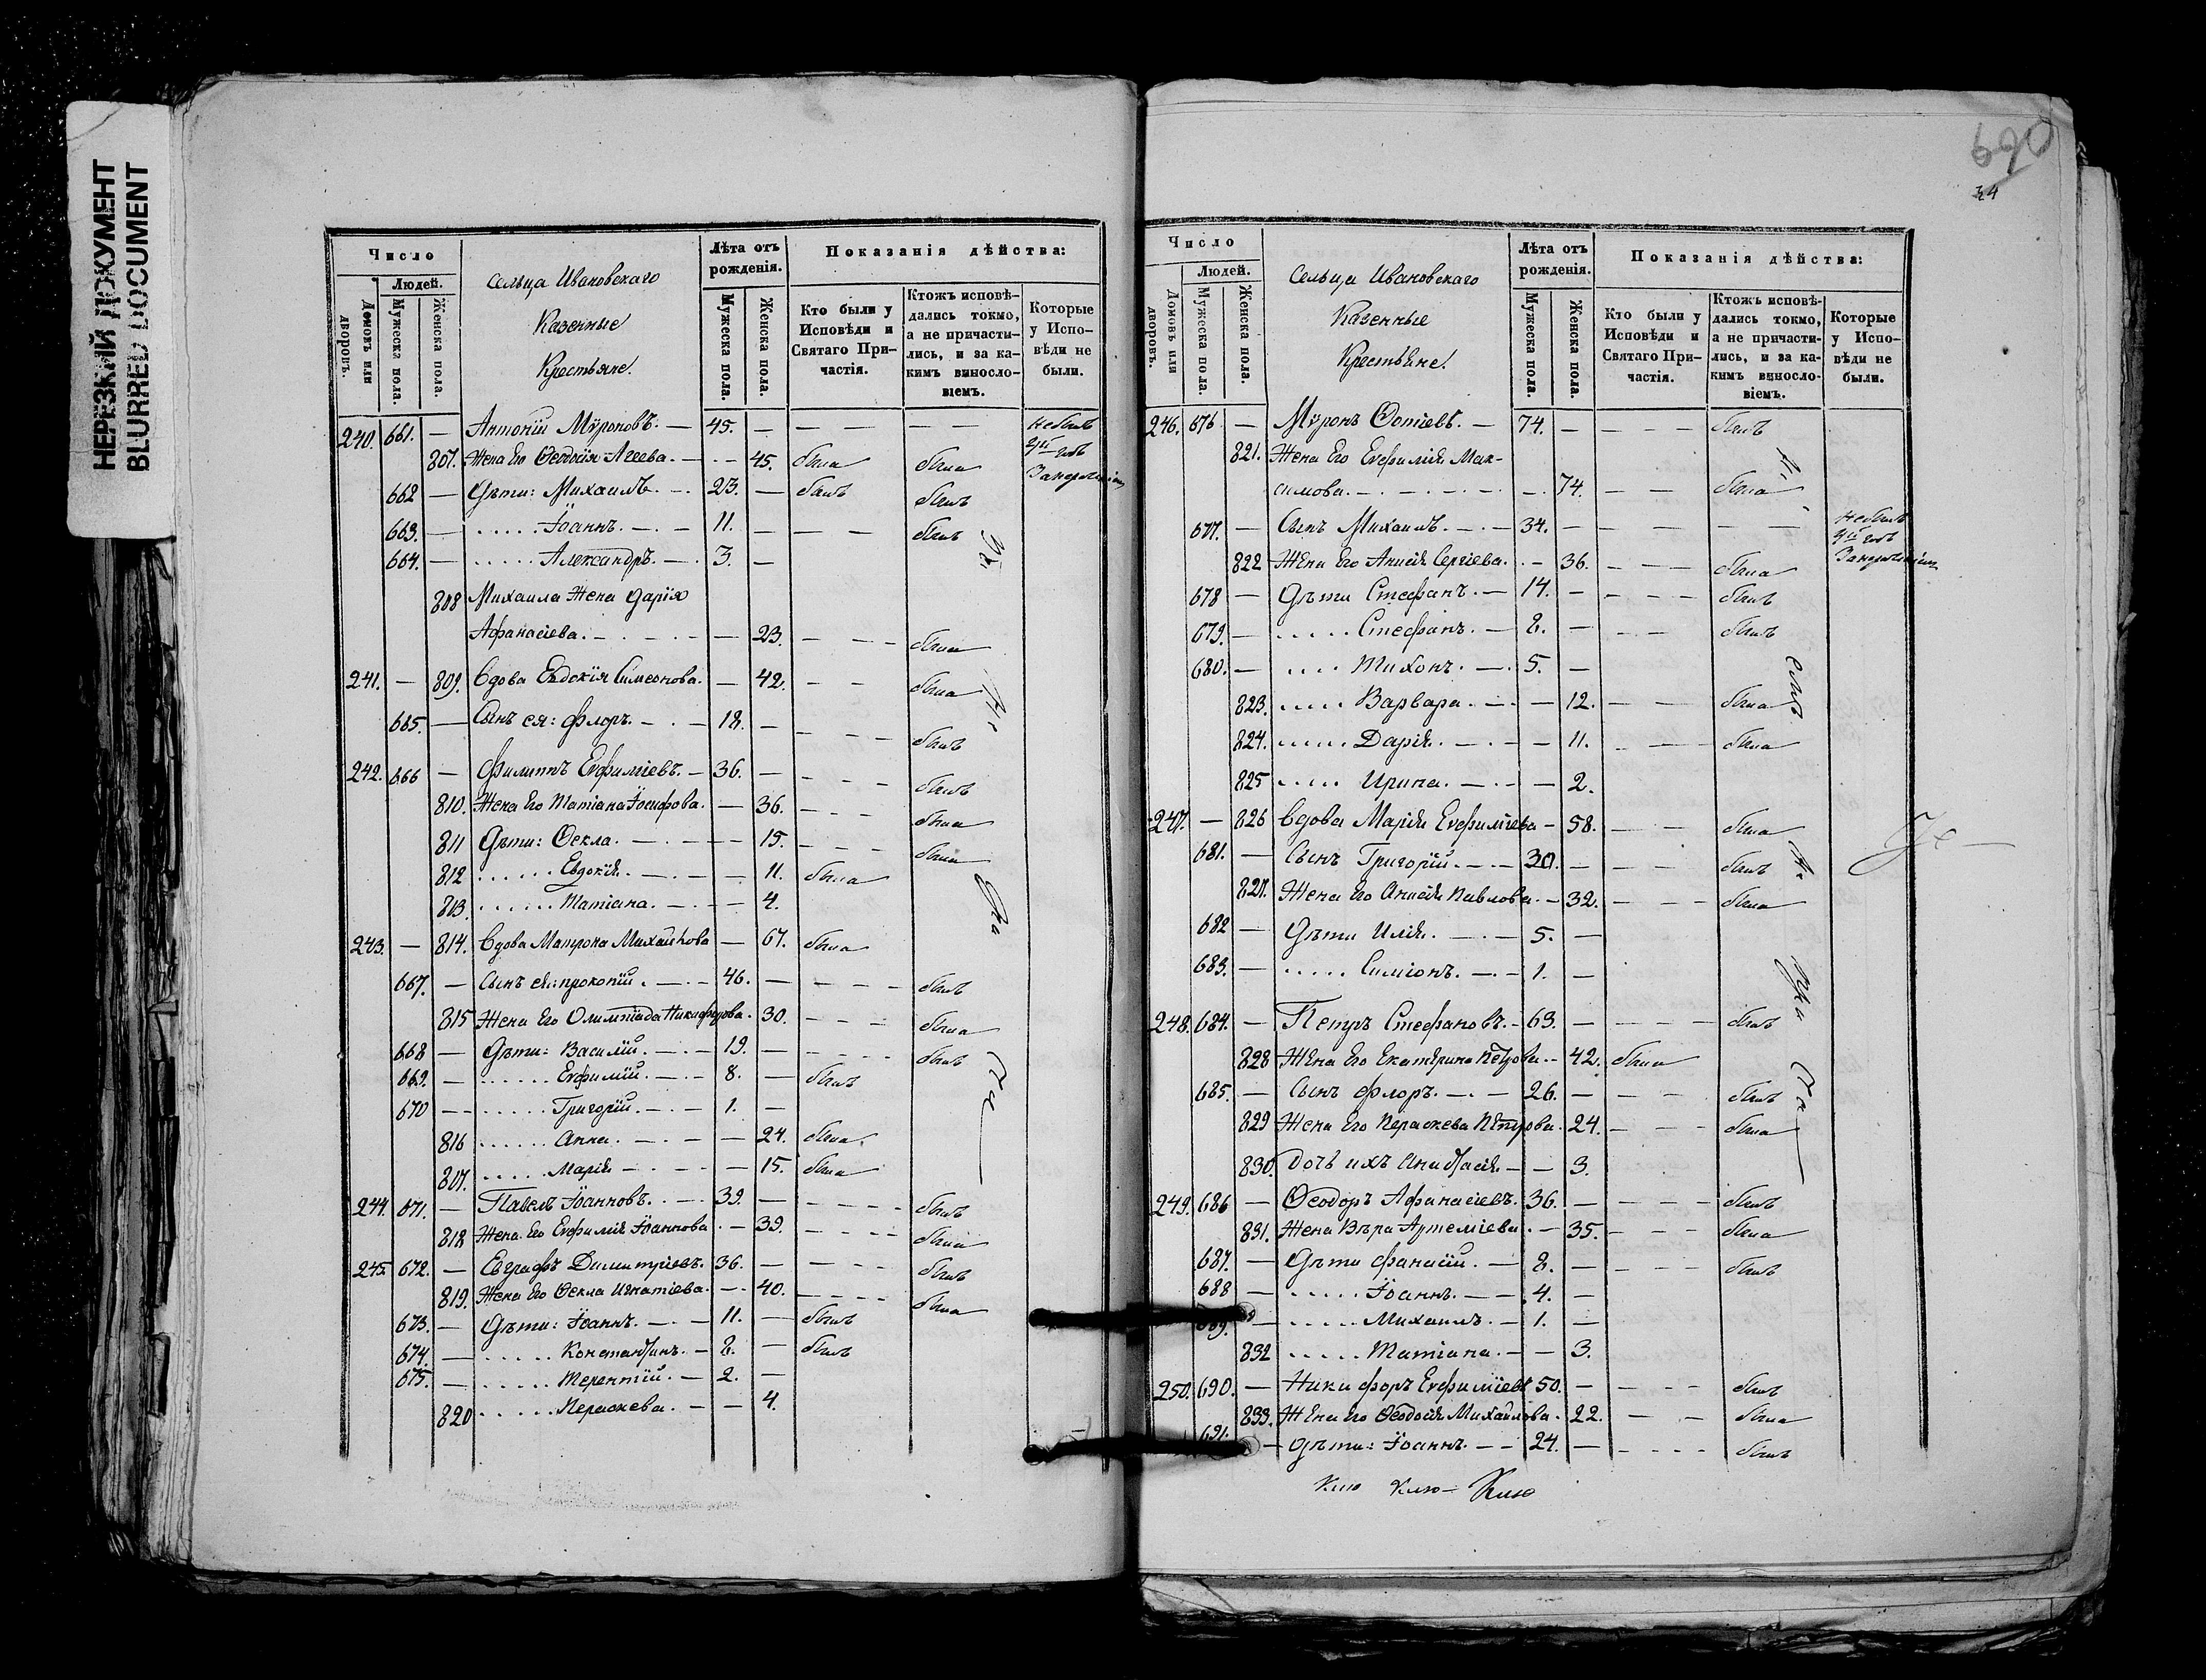 НЕРЕЗКИЙ ДОКУМЕНТ
BLURRED DOCUMENT
Число
Людей.
Домовъ или дворовъ.
Мужеска пола.
Женска пола.
Сельца Ивановскаго
Казенные
Крестьяне.
Лѣта отъ рожденія.
Мужеска пола.
Женска пола.
Показанія дѣйства:
Кто были у Исповѣди и Святаго При-частія.
Ктожъ исповѣ-дались токмо, а не причасти-лись, и за ка-кимъ винослο-віемъ.
Которые у Испо-вѣди не были.
240. 661. — Антоній Мѵроновъ. — 45. — — — — — небылъ
807. Жена Его Ѳеодосія Агеева. — - - 45. была была
662 — Дѣти: Михаилъ. - . 23. — былъ былъ
663. — ..... Іоаннъ. - . - 11. — — — былъ
664. — ..... Александръ. — . 3. —
808 Михаила Жена Дарія
Афанасіева. - . - . - - — 23. - - - - была
241. — 809. Вдова Евдокія Симеонова. — 42. - - была
665. — Сынъ ея: Флоръ. - . - 18. - - - - былъ
242. 666 — Филиппъ Евфиміевъ. - 36. — - - - былъ
810. Жена Его Татіана Іосифова. — 36. - - - была
811 Дѣти: Ѳекла. - . - . - - - 15. - - - была
812 ...... Евдокія. - . - - - 11. была
813. ...... Татіана. - . - - - 4.
243. — 814. Вдова Матрона Михайлова — 67. была
667. — Сынъ ея: Прокопій. — . - 46. - - - - былъ
815 Жена Его Олимпіада Никифорова. 30. - - - была
668 — Дѣти: Василій. - . - 19. — - - - былъ
669. — ...... Евфимій. - . - 8. — былъ
670 - - ...... Григорій. - . - 1. —
816 ...... Анна. - . - - 24. была
807. ..... Марія - . - - - 15. была
244. 671. — Павелъ Іоанновъ. . - - 39. — - - - - былъ
818 Жена Его Евфимія Іоаннова. - 39. - - - - была
245. 672. — Евграфъ Димитріевъ. 36. — - - - былъ
819. Жена Его Ѳекла Игнатіева. - - 40. - - - - была
673. — Дѣти: Іоаннъ. - . - 11. — былъ
674. — ..... Константинъ. - 8. — былъ
675. — ..... Терентій. - 2. —
820 ..... Параскева. - - 4.
34
Число
Людей.
Домовъ или дворовъ.
Мужеска пола.
Женска пола.
Сельца Ивановскаго
Казенные
Крестьяне.
Лѣта отъ рожденія.
Мужеска пола.
Женска пола.
Показанія дѣйства:
Кто были у Исповѣди и Святаго При-частія.
Ктожъ исповѣ-дались токмо, а не причасти-лись, и за ка-кимъ винослο-віемъ.
Которые у Испо-вѣди не были.
246. 676 — Мѵронъ Ѳотіевъ. — 74. — - - - былъ
821. Жена Его Евфимія Мак-
симова. - . - . - . - - . 74. — — была
677. — Сынъ Михаилъ. - . - 34. — — — — небылъ
822 Жена Его Анисія Сергіева. . - 36. - - - была
678 — Дѣти Стефанъ. — 14. - - - - былъ
679. — ..... Стефанъ. — 8. — - - - былъ
680. — .... Тихонъ. - . 5. —
823. ..... Варвара. - . - 12. — — была
824. ..... Дарія. - . - - 11. - - - была
825 ..... Ирина. - . - - 2.
247. — 826 Вдова Марія Евфиміева - 58. — - была
681. — Сынъ Григорій. - . - 30. — - - былъ
827. Жена Его Анисія Павлова. - 32. - - - была
682 — Дѣти Илія. - . - 5. —
683. — ..... Симіонъ. - . - 1. —
248. 684. — Петръ Стефановъ. - 63. — - - - былъ
828 Жена Его Екатерина Петрова. - 42. была
685. — Сынъ Флоръ. - . - 26. — - - - былъ
829 Жена Его Параскева Петрова. 24. - - - была
830. Дочь ихъ Анастасія - - 3.
249. 686 — Ѳеодоръ Афанасіевъ. 36. — - - - былъ
831. Жена Вѣра Артеміева. - 35. - - - была
687. — Дѣти Фанасій. - 8. — - - - былъ
688 — ..... Іоаннъ. - - 4. —
689. — ..... Михаилъ. - 1. —
832 ..... Татіана. - - 3.
250. 690. — Никифоръ Евфиміевъ 50. — - - - былъ
833. Жена Его Ѳеодосія Михайлова. 22. - - была
691. — Дѣти: Іоаннъ. - - 24. — - - - - былъ